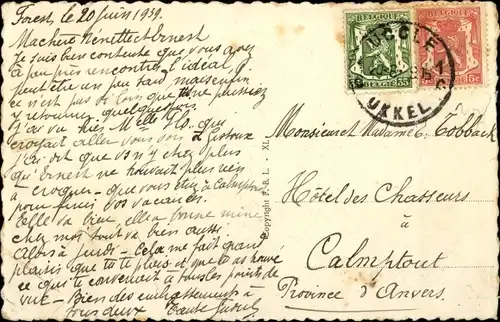 Forest, le 20 Juin 1939.
Ma chère Nénette et Ernest
Je suis bien contente que vous avez
à peu près rencontré l'idéal
peut être un peu tard mais enfin
ce n'est pas si loin que tu ne puisses
y retourner quelquefois
J'ai vu hier Melle
croyait aller vous voir à
J'ai dit que vs n'y chez plus
qu'Ernest ne trouvait plus rien
à croquer - que vous étiez à Calmpthout
pour finir vos vacances.
Elle va bien, elle a bonne mine
chez moi tout va bien aussi.
Alors à jeudi - Cela me fait grand
plaisir que tu te plais et que tu as trouvé
ce qui te convenait à tous les points de
vue - Bien des embrassements à
tous deux Tante
BELGIQUE
BELGIE 35
BELGIQUE
15c
UCCLE
UKKEL
Monsieur et Madame C. Tobback
Hôtel des Chasseurs
à
Calmptout
Province d'Anvers.
Copyright P.R.L. - XL